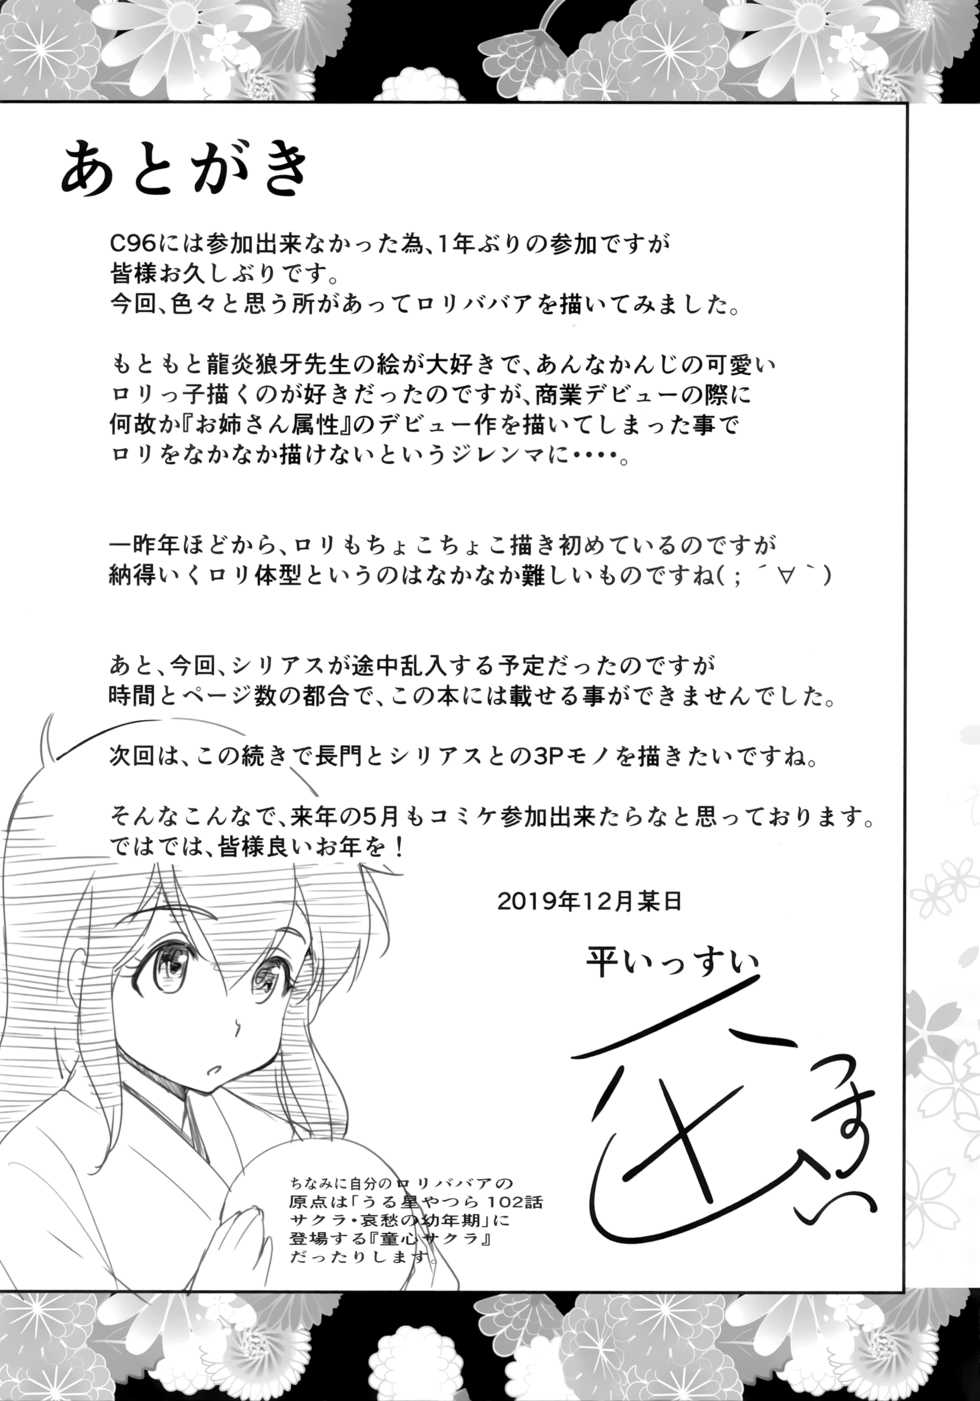 あとがき
C96には参加出来なかった為、1年ぶりの参加ですが
皆様お久しぶりです。
今回、色々と思う所があってロリババアを描いてみました。
もともと龍炎狼牙先生の絵が大好きで、あんなかんじの可愛い
ロリっ子描くのが好きだったのですが、商業デビューの際に
何故か『お姉さん属性』のデビュー作を描いてしまった事で
ロリをなかなか描けないというジレンマに・・・・。
一昨年ほどから、ロリもちょこちょこ描き初めているのですが
納得いくロリ体型というのはなかなか難しいものですね(；´∀｀)
あと、今回、シリアスが途中乱入する予定だったのですが
時間とページ数の都合で、この本には載せる事ができませんでした。
次回は、この続きで長門とシリアスとの3Pモノを描きたいですね。
そんなこんなで、来年の5月もコミケ参加出来たらなと思っております。
ではでは、皆様良いお年を！
2019年12月某日
平いっすい
ちなみに自分のロリババアの
原点は「うる星やつら 102話
サクラ・哀愁の幼年期」に
登場する『童心サクラ』
だったりします。